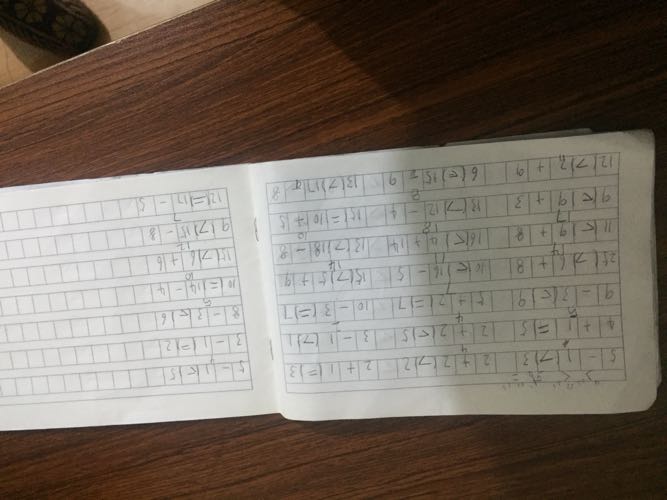 ">" "<" "="
5 - 1 (>) 3 2 + 2 (>) 2 2 + 1 (=) 3
4 + 1 (=) 5 2 + 2 (<) 5 3 - 1 (>) 1
9 - 3 (<) 9 5 + 2 (=) 7 10 - 3 (=) 7
25 (>) 6 + 8 10 (<) 16 - 5 15 (>) 5 + 9
11 (<) 9 + 8 16 (<) 4 + 14 13 (>) 18 - 8
9 (<) 9 + 3 13 (>) 12 - 4 15 (=) 10 + 5
12 (>) 2 + 9 6 (<) 15 - 9 13 (>) 17 - 8
5 - 1 (<) 5
3 - 1 (=) 2
8 - 3 (<) 6
10 (=) 14 - 4
15 (>) 6 + 6
9 (>) 15 - 8
12 (=) 17 - 5